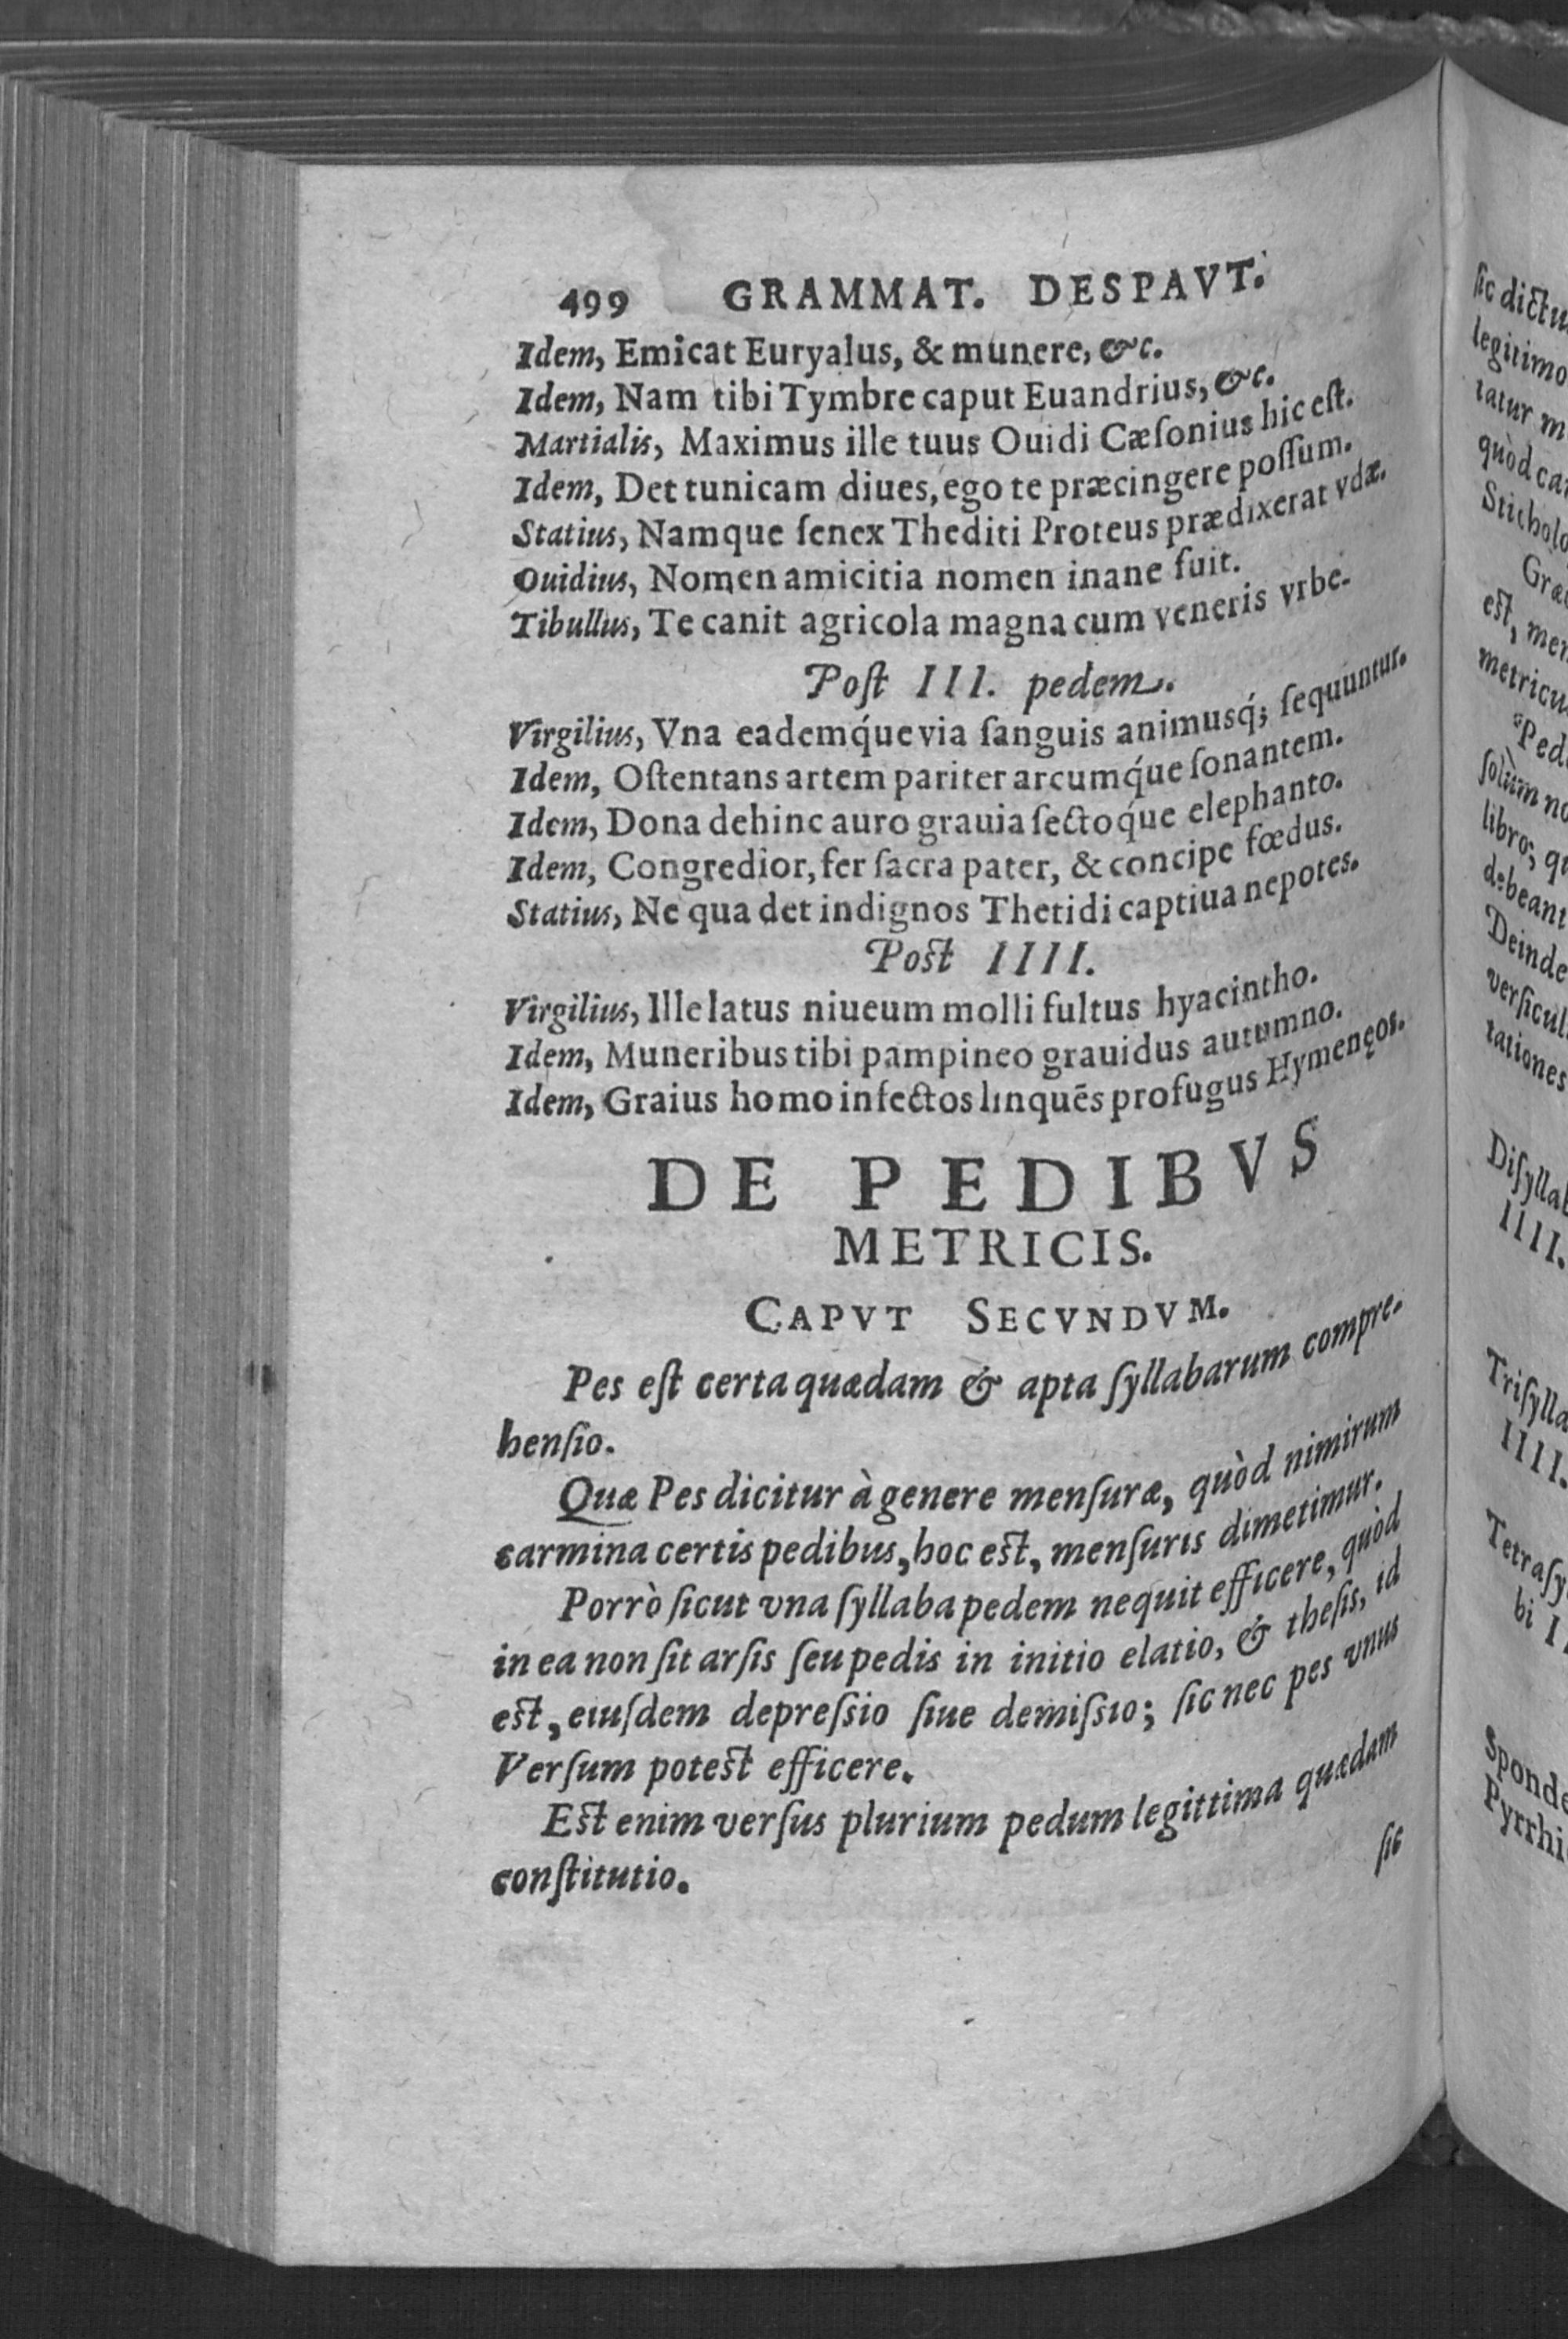 499 GRAMMAT. DESPAVT.
Idem, Emicat Euryalus, & munere, &c.
Idem, Nam tibi Tymbre caput Euandrius, &c.
Martialis, Maximus ille tuus Ouidi Cæſonius hic eſt.
Idem, Det tunicam diues, ego te præcingere poſſum.
Statius, Namque ſenex Thediti Proteus prædixerat vdæ.
Ouidius, Nomen amicitia nomen inane fuit.
Tibullus, Te canit agricola magna cum veneris vrbe.
Poſt III. pedem.
Virgilius, Vna eademq́ue via ſanguis animusq́; ſequuntur.
Idem, Oſtentans artem pariter arcumq́ue ſonantem.
Idem, Dona dehinc auro grauia ſectoq́ue elephanto.
Idem, Congredior, fer ſacra pater, & concipe fœdus.
Statius, Ne qua det indignos Thetidi captiua nepotes.
Poſt IIII.
Virgilius, Ille latus niueum molli fultus hyacintho.
Idem, Muneribus tibi pampineo grauidus autumno.
Idem, Graius homo infectos linquẽs profugus Hymenęos.
DE PEDIBVS
METRICIS.
CAPVT SECVNDVM.
Pes eſt certa quædam & apta ſyllabarum compre-
henſio.
Quæ Pes dicitur à genere menſuræ, quòd nimirum
carmina certis pedibus, hoc eſt, menſuris dimetimur.
Porrò ſicut vna ſyllaba pedem nequit efficere, quòd
in ea non ſit arſis ſeu pedis in initio elatio, & theſis, id
eſt, eiuſdem depreſsio ſiue demiſsio; ſic nec pes vnus
Verſum poteſt efficere.
Eſt enim verſus plurium pedum legittima quædam
conſtitutio.
ſic
ſic dictu
legitimo
tatur m
quòd car
Sticholo
Græ
eſt, men
metricu
Ped
ſolùm no
libro, q
debeant
Deinde
verſicul
tationes
Diſyllab
IIII.
Triſylla
IIII.
Tetraſy
bi I
Sponde
Pyrrhi